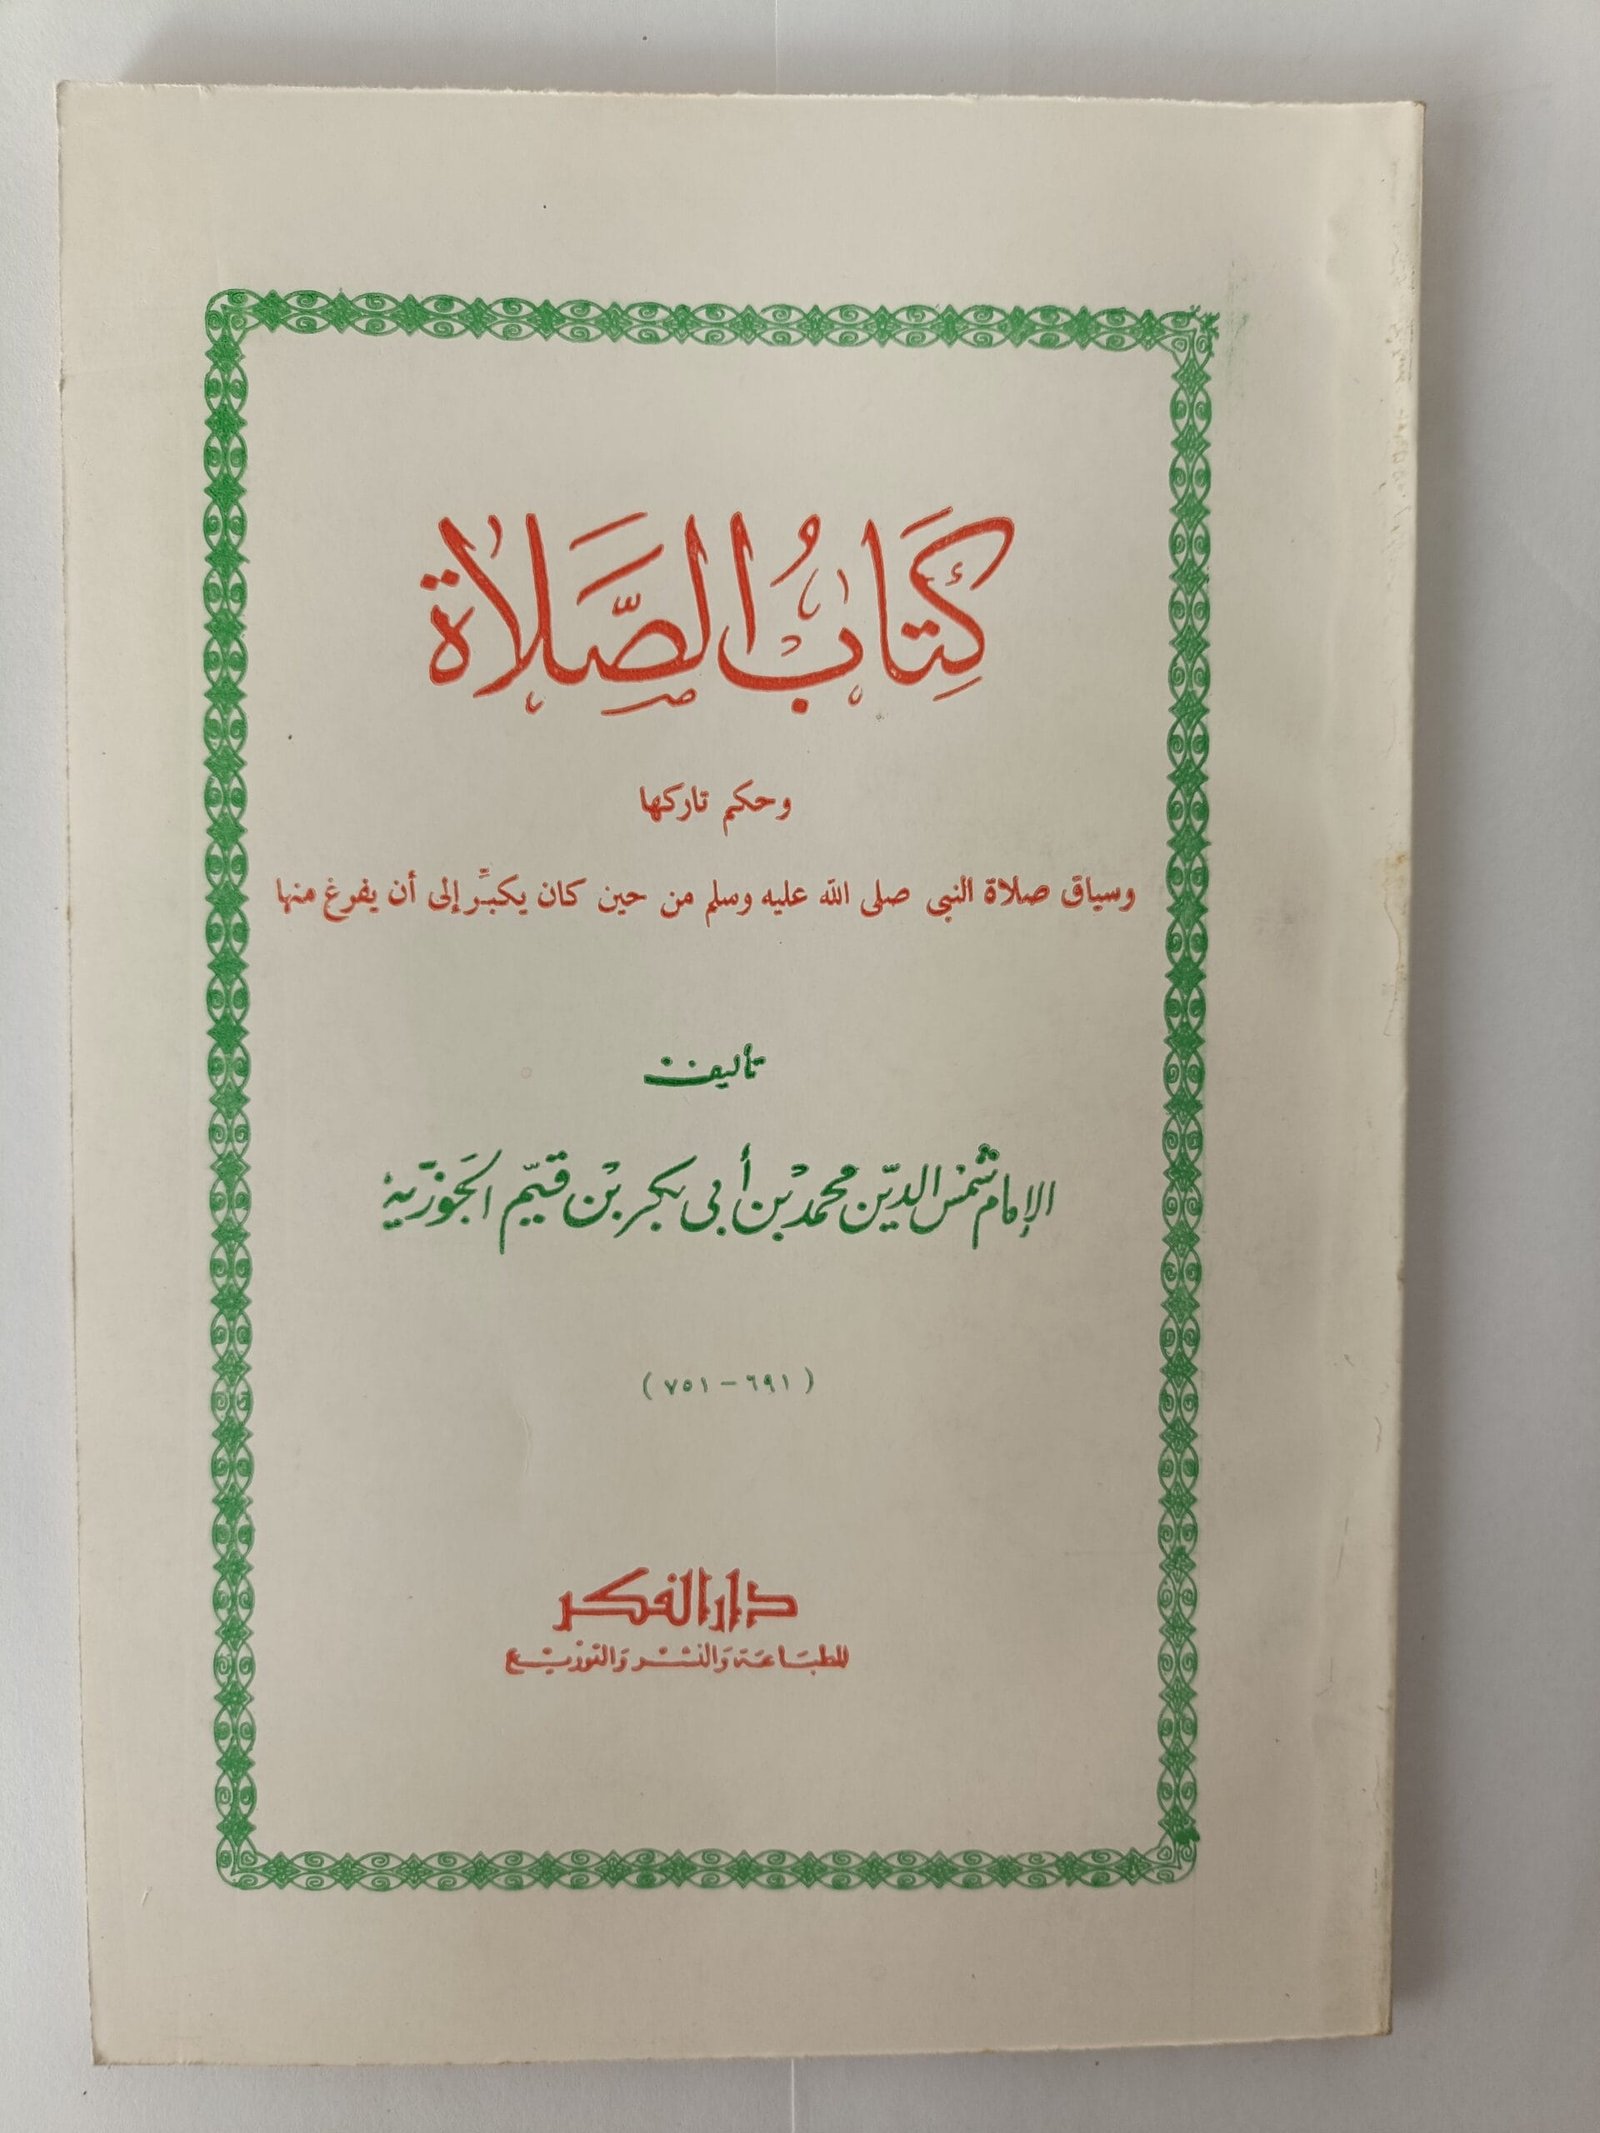 كِتَابُ الصَّلَاة
وحكم تاركها
وسياق صلاة النبي صلى الله عليه وسلم من حين كان يكبِّر إلى أن يفرغ منها
تأليف
الإمام شمس الدّين محمد بن أبي بكر بن قيّم الجَوزيّة
( ٦٩١ – ٧٥١ )
دار الفكر
للطبَاعَة وَالنشْر وَالتوزيْع